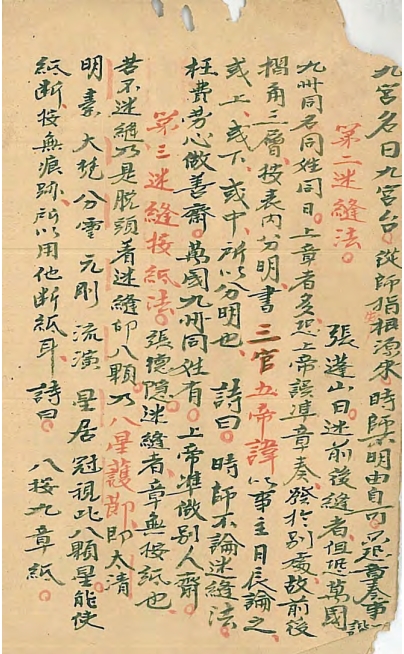 九宮名曰九宮台。從師指根源來時師不明由自可
第二迷縫法。
張蓬山曰迷前後縫者但恐萬國
九州同名同姓同日上章者多恐上帝誤準章奏發於別處故前後
摺角三層按表內分明書三官五帝諱以事主日長論之
或上或下或中所以分明也 詩曰。時師不論迷縫法。
枉費勞心做善齋。萬國九州同姓有。上帝準做別人齋。
第三迷縫接紙法。張德隱迷縫者章無接紙也
若不迷縫乃是脫頭着迷縫印八顆乃八星護節即太清
明 大 分 元剛 流演 居冠視此八顆星能使
紙斷接無痕跡所以用他斷紙耳 詩曰。八接九章紙。